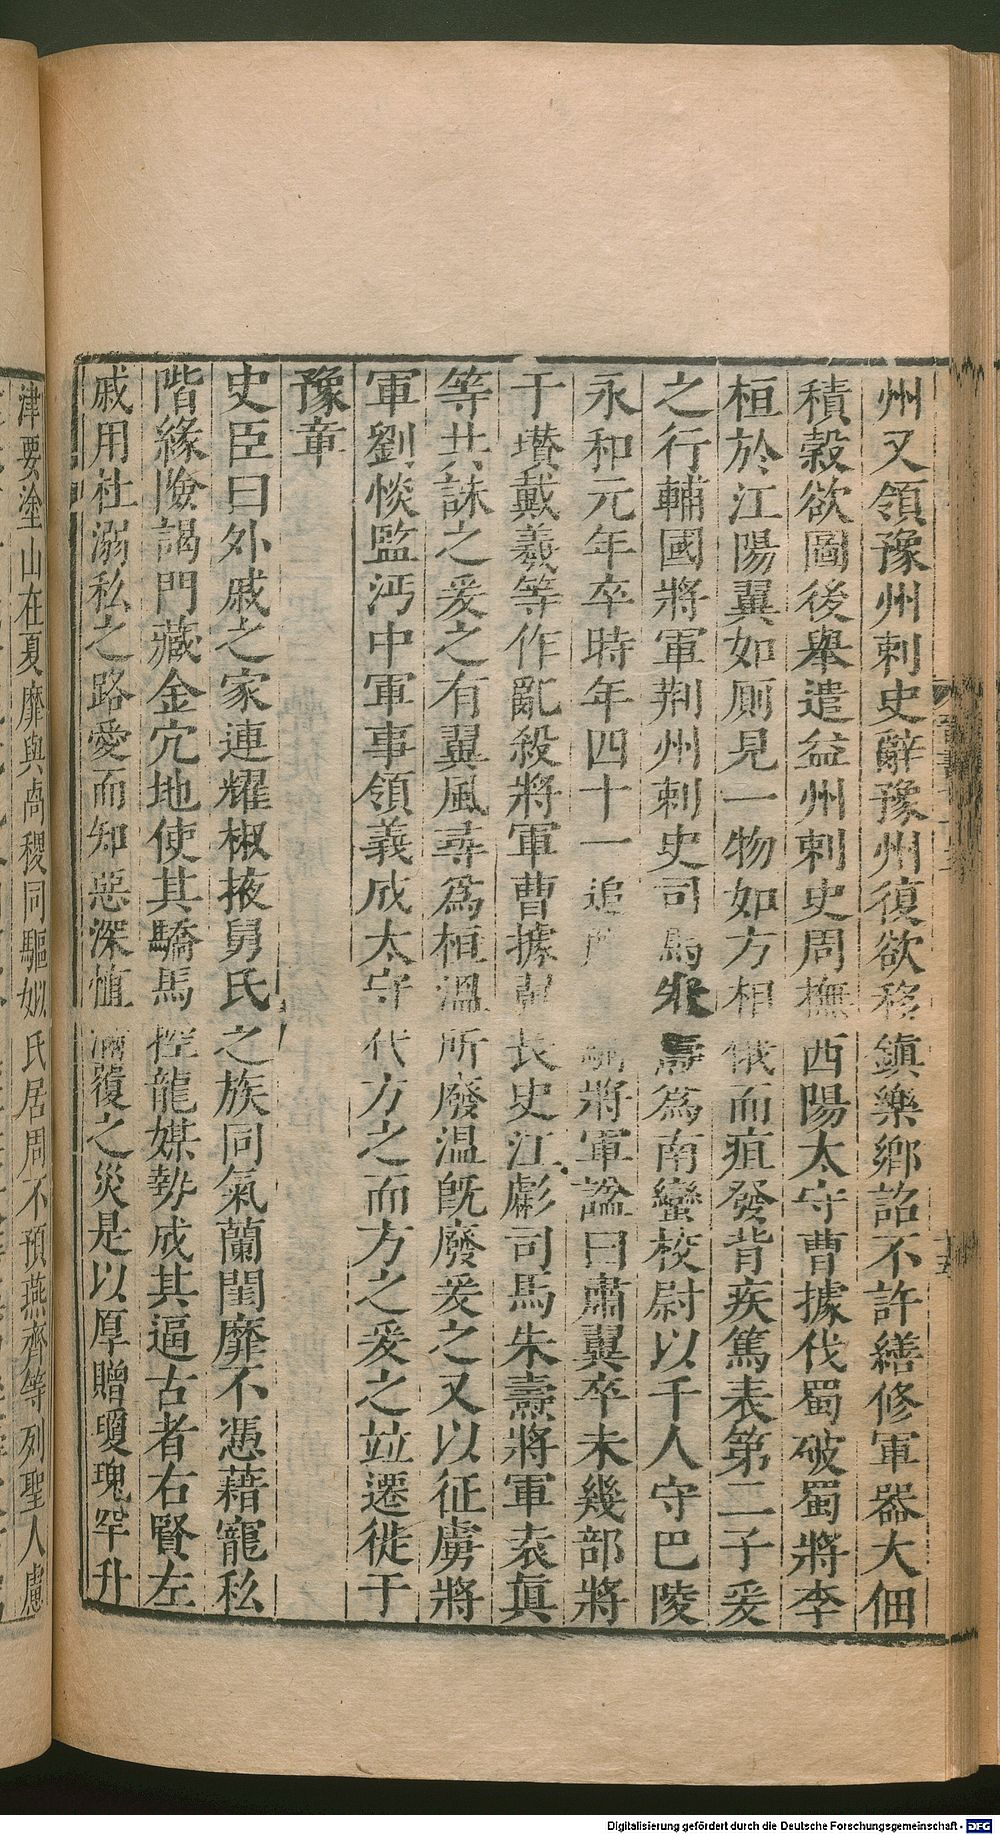 州又領豫州刺史辭豫州復欲移鎮樂鄉詔不許繕修軍器大佃
積穀欲圖後舉遣益州刺史周撫西陽太守曹據伐蜀破蜀將李
桓於江陽翼如厠見一物如方相俄而疽發背疾篤表第二子爰
之行輔國將軍荆州刺史司馬朱燾爲南蠻校尉以千人守巴陵
永和元年卒時年四十一追 將軍諡曰肅翼卒未幾部將
于瓚戴羲等作亂殺將軍曹據翼長史江虨司馬朱燾將軍袁眞
等共誅之爰之有翼風尋爲桓溫所廢温旣廢爰之又以征虜將
軍劉惔監沔中軍事領義成太守代方之而方之爰之竝遷徙于
豫章
史臣曰外戚之家連耀椒掖舅氏之族同氣蘭閨靡不憑藉寵私
階緣險謁門藏金穴地使其驕馬控龍媒勢成其逼古者右賢左
戚用杜溺私之路愛而知惡深慎滿覆之災是以厚贈瓊瑰罕升
津要塗山在夏靡與卨稷同驅姒氏居周不預燕齊等列聖人慮
Digitalisierung gefördert durch die Deutsche Forschungsgemeinschaft - DFG